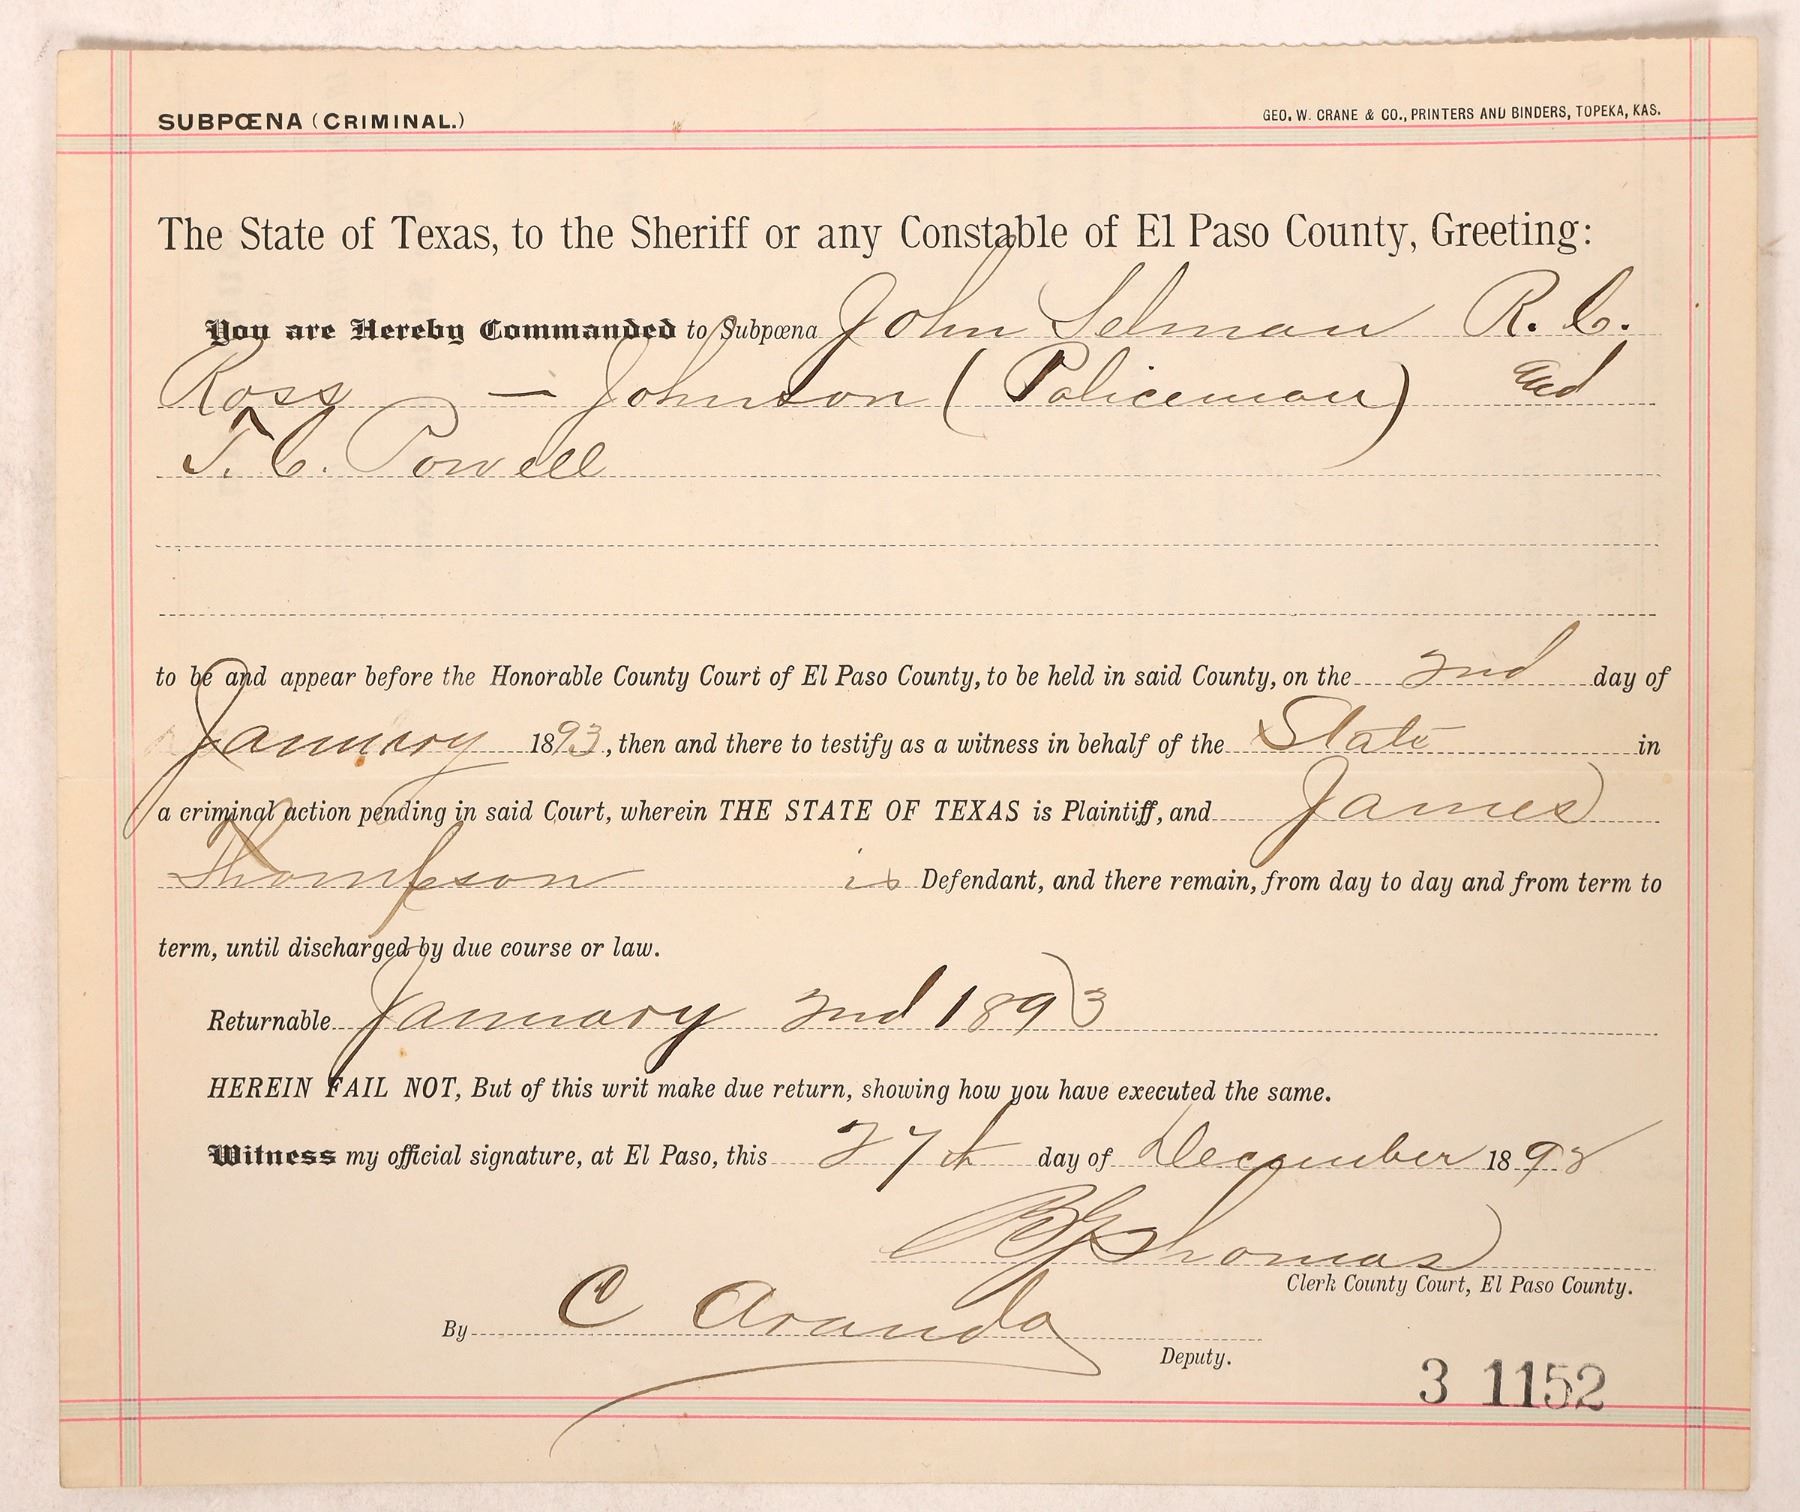 SUBPŒNA (CRIMINAL.)
GEO. W. CRANE & CO., PRINTERS AND BINDERS, TOPEKA, KAS.
The State of Texas, to the Sheriff or any Constable of El Paso County, Greeting:
You are Hereby Commanded to Subpœna John Selman R. C.
Ross — Johnson (Policeman) and
T. C. Powell
to be and appear before the Honorable County Court of El Paso County, to be held in said County, on the 2nd day of
January 1893, then and there to testify as a witness in behalf of the State in
a criminal action pending in said Court, wherein THE STATE OF TEXAS is Plaintiff, and James
Thompson is Defendant, and there remain, from day to day and from term to
term, until discharged by due course or law.
Returnable January 2nd 1893
HEREIN FAIL NOT, But of this writ make due return, showing how you have executed the same.
Witness my official signature, at El Paso, this 27th day of December 1892
Thomas
Clerk County Court, El Paso County.
By C Aranda
Deputy.
3 1152